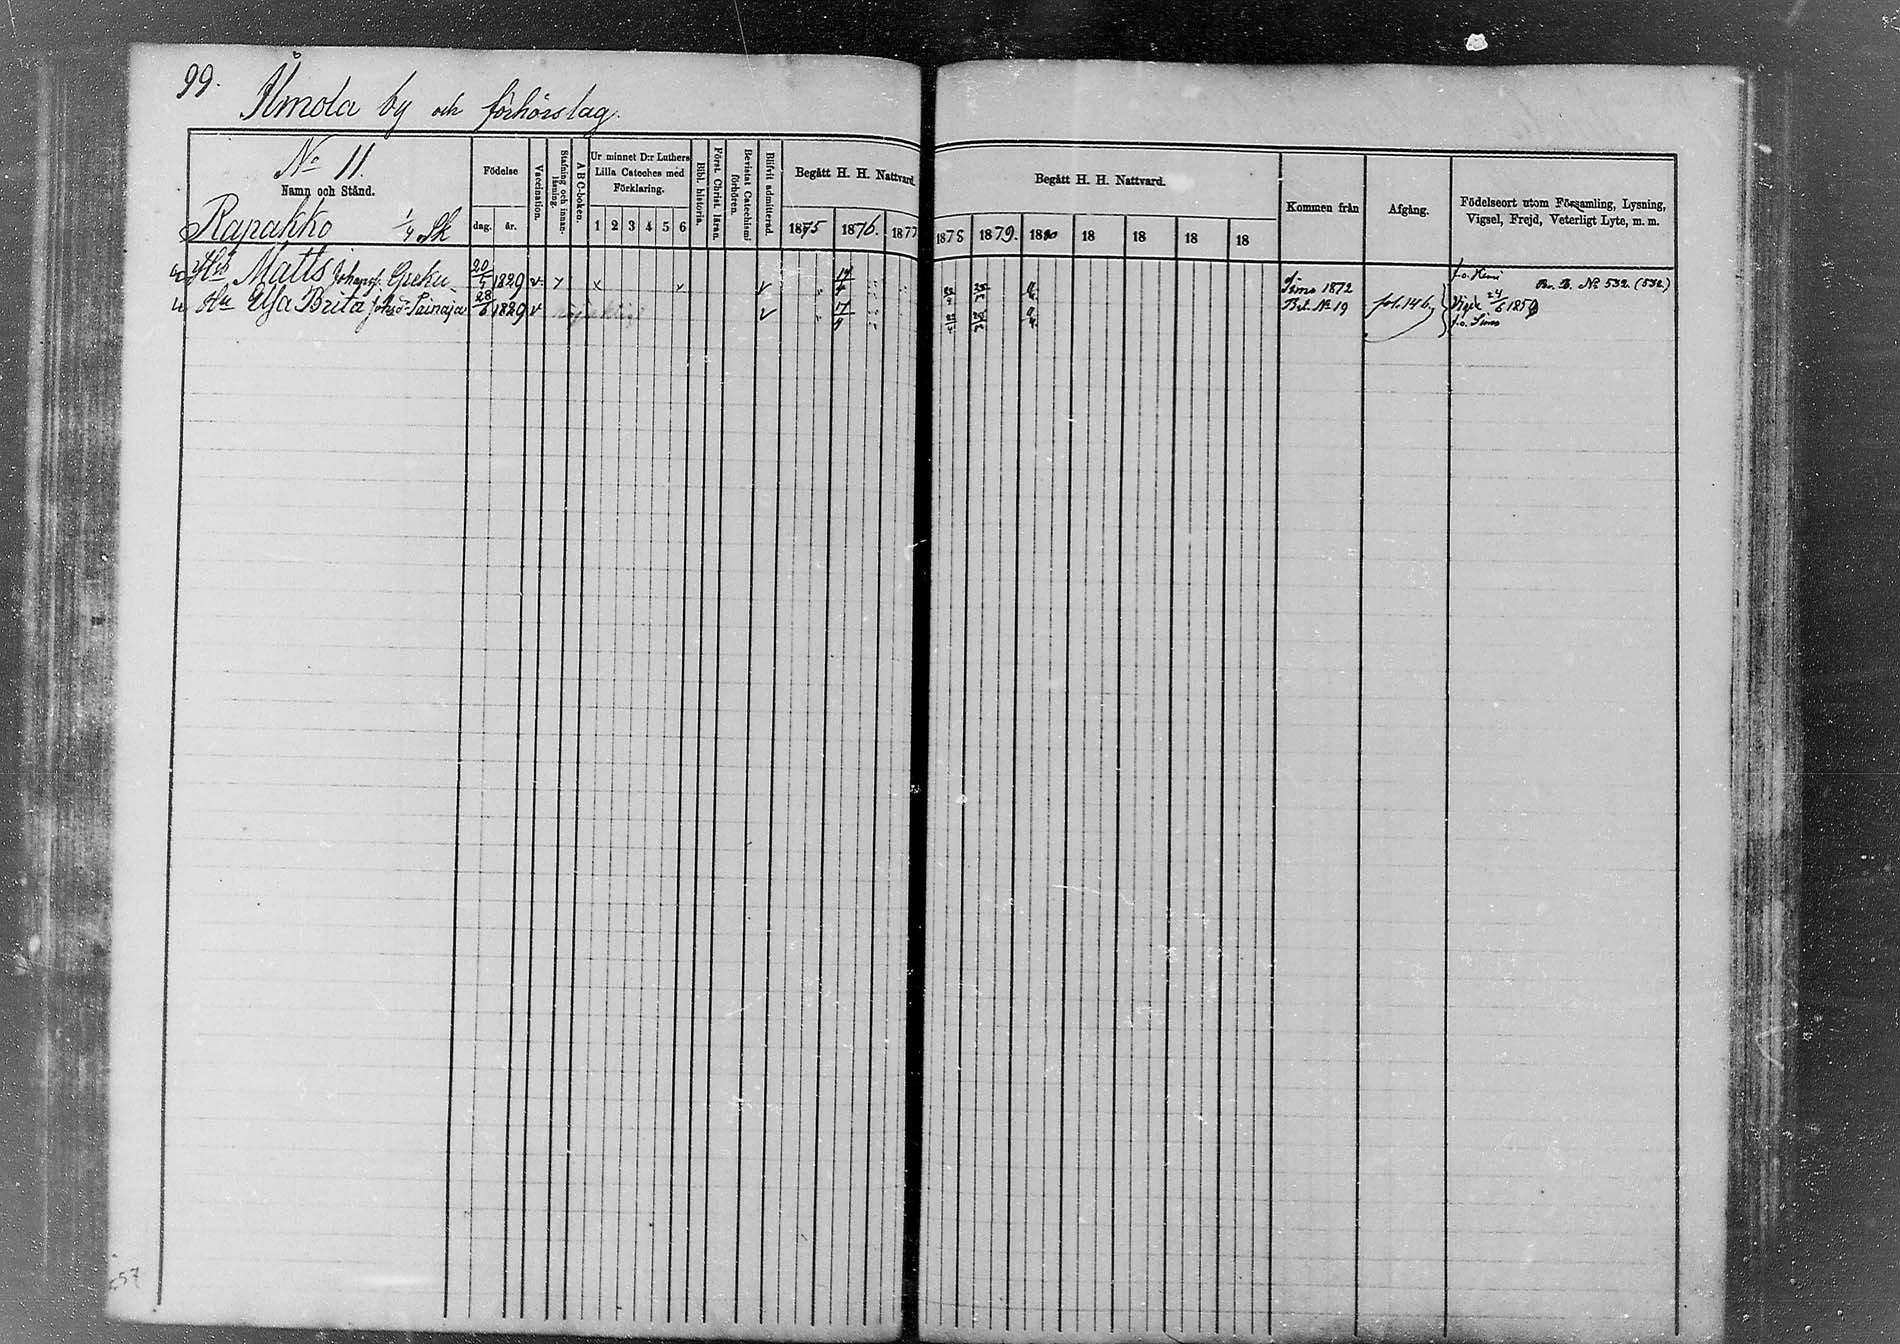 99.
Ilmola by och förhörslag.
No 11.
Namn och Stånd.
Rapakko 1/4 Sk
Födelse
dag. år.
Vaccination.
Stafning och innanläsning.
A B C-boken.
Ur minnet D:r Luthers Lilla Cateches med Förklaring.
1 2 3 4 5 6
Bibl. historia.
Först. Christ. läran.
Bevistat Catechismi förhören.
Blifvit admitterad.
Begått H. H. Nattvard.
1875 1876. 1877
Begått H. H. Nattvard.
1878 1879. 1880 18 18 18 18
Kommen från
Afgång.
Födelseort utom Församling, Lysning, Vigsel, Frejd, Veterligt Lyte, m. m.
Matts Johanss. Greku 20/4 1829 v Simo 1872 f. o. Kemi Br. B. No 532. (532)
Hu Elsa Brita Johsdr Sainaja 28/6 1829 v 17/9 Bet. No 19 fol. 146 Vigde 24/6 1859
f. o. Simo
57